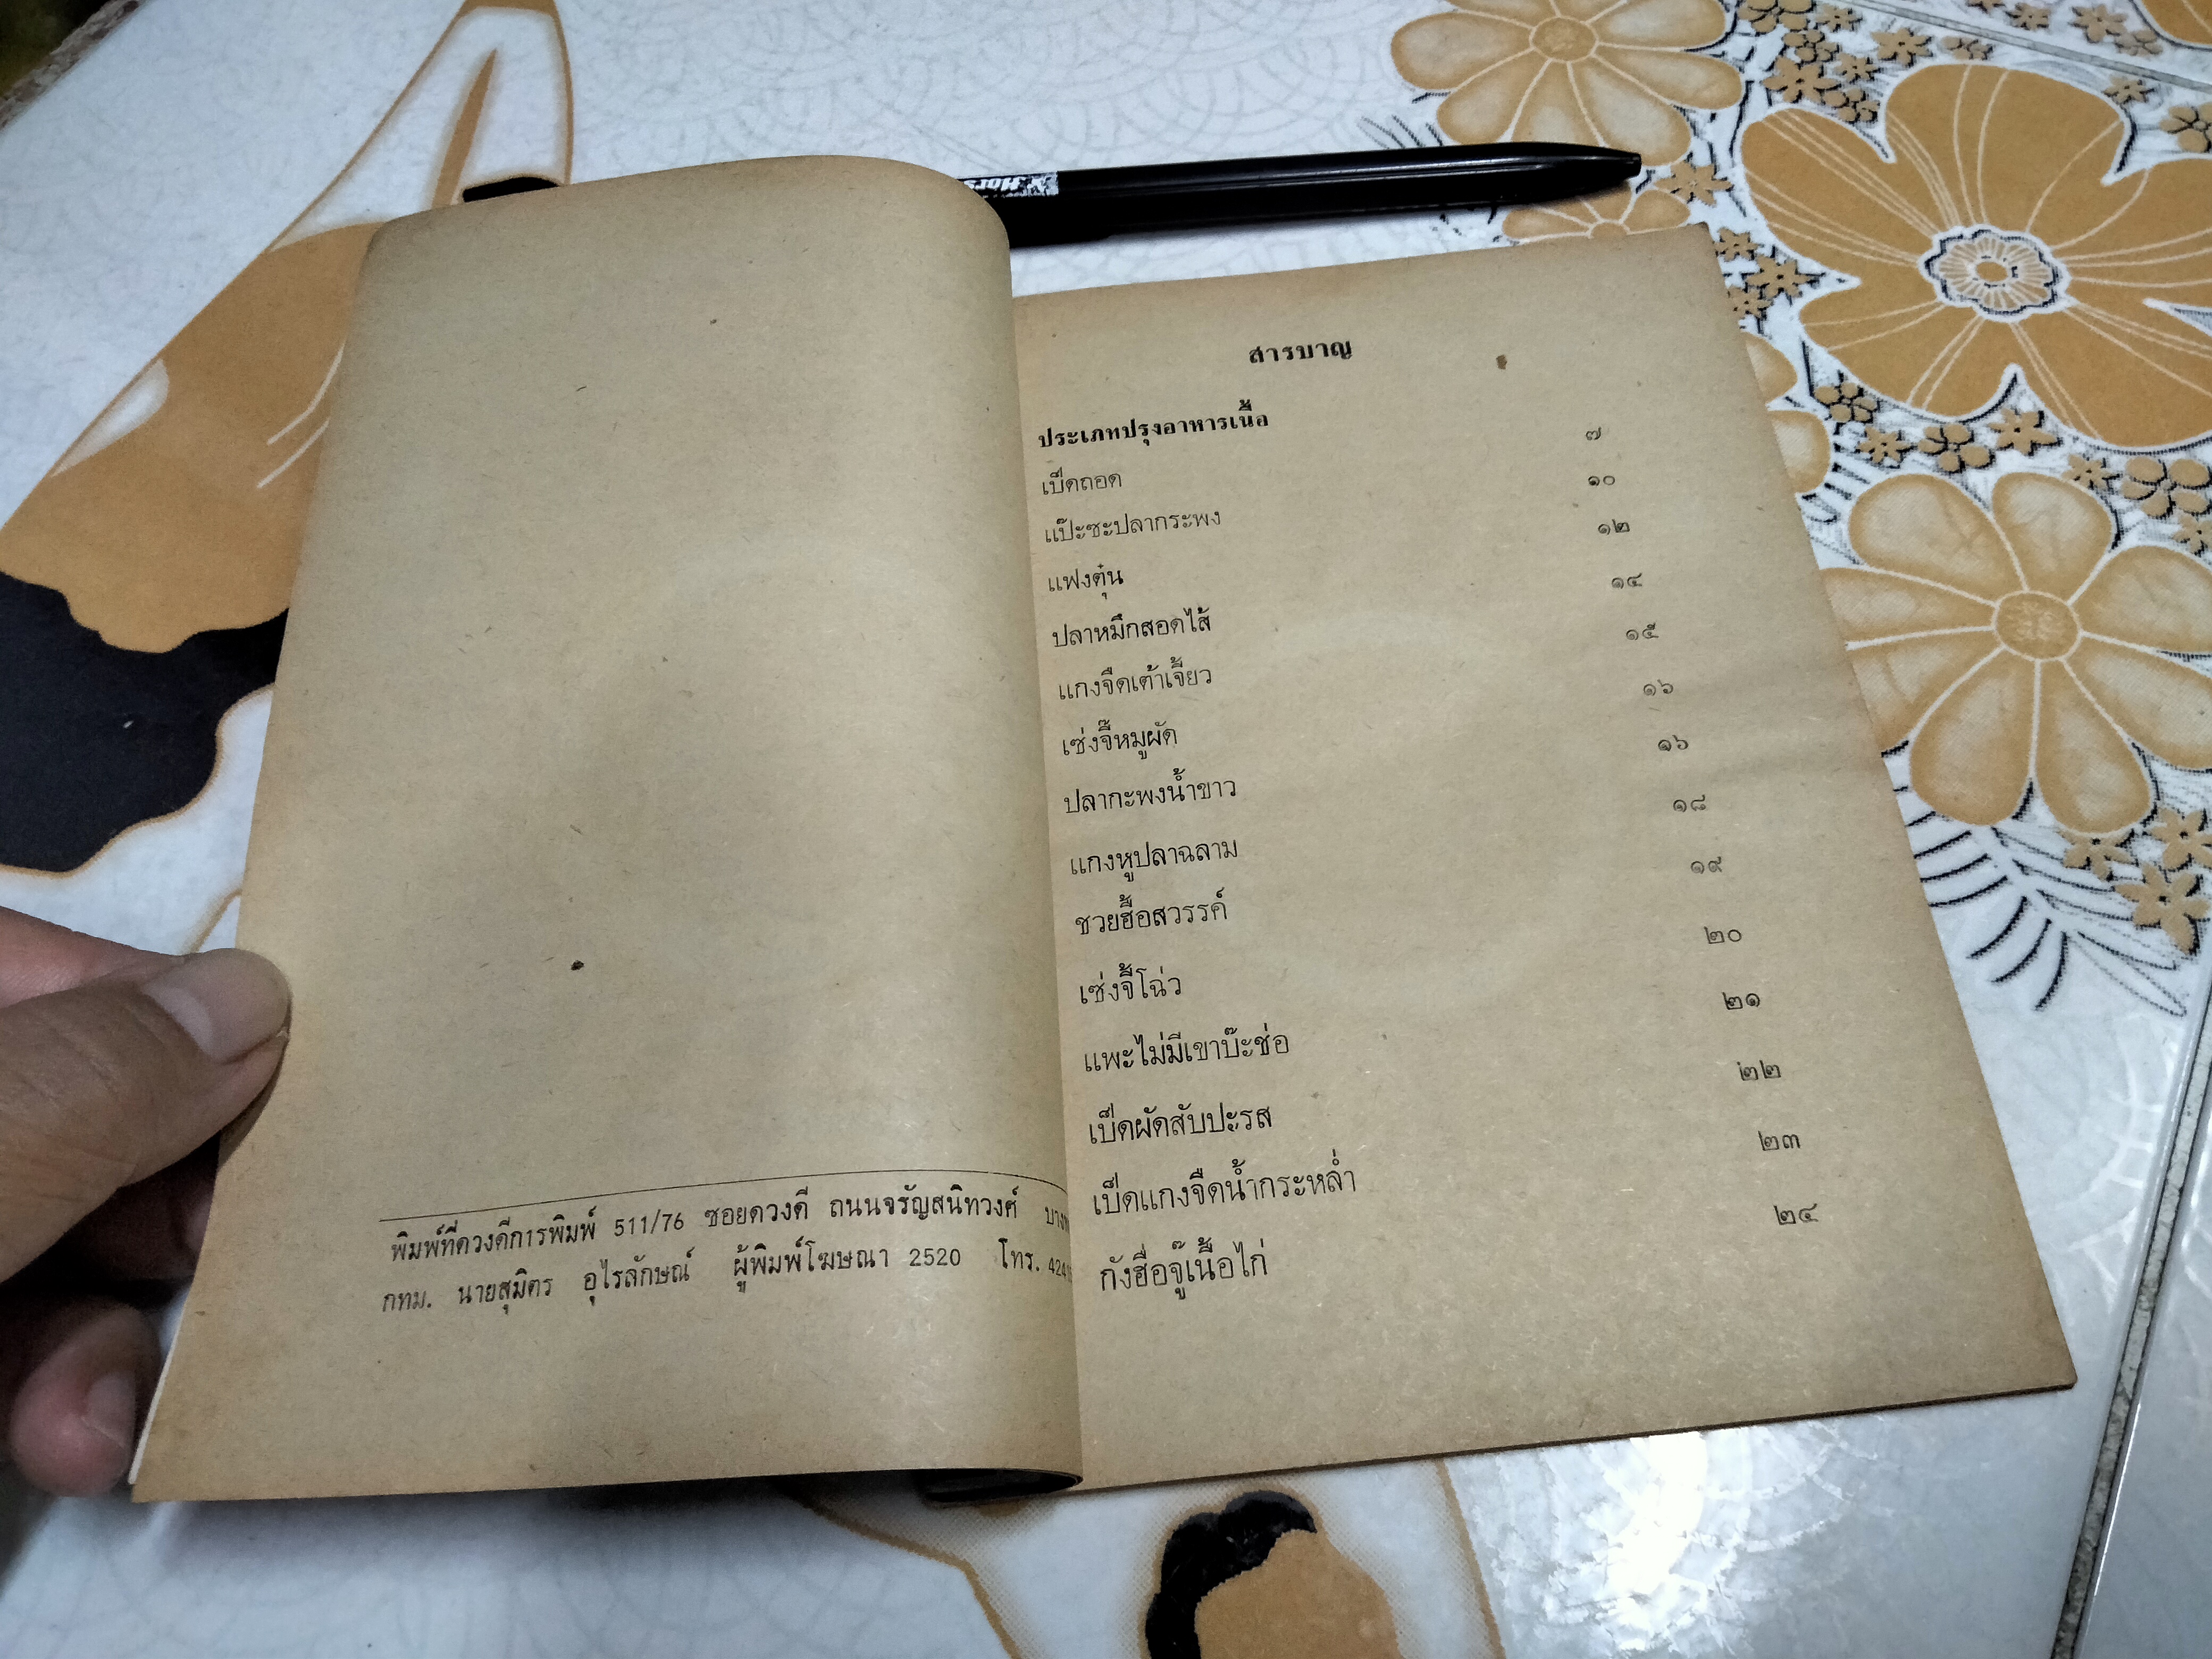 พิมพ์ที่ดวงดีการพิมพ์ 511/76 ซอยดวงดี ถนนจรัญสนิทวงศ์
กทม. นายสุมิตร อุไรลักษณ์ ผู้พิมพ์โฆษณา 2520 โทร. 424
สารบาญ
ประเภทปรุงอาหารเนื้อ
เป็ดถอด ๗
แป๊ะซะปลากระพง ๑๐
แฟงตุ๋น ๑๒
ปลาหมึกสอดไส้ ๑๔
แกงจืดเต้าเจี้ยว ๑๕
เซ่งจี๊หมูผัด ๑๖
ปลากะพงน้ำขาว ๑๖
แกงหูปลาฉลาม ๑๘
ชวยฮื้อสวรรค์ ๑๙
เซ่งจี๊โฉ่ว ๒๐
แพะไม่มีเขาบ๊ะช่อ ๒๑
เป็ดผัดสับปะรส ๒๒
เป็ดแกงจืดน้ำกระหล่ำ ๒๓
กังฮื่อจู๊เนื้อไก่ ๒๔